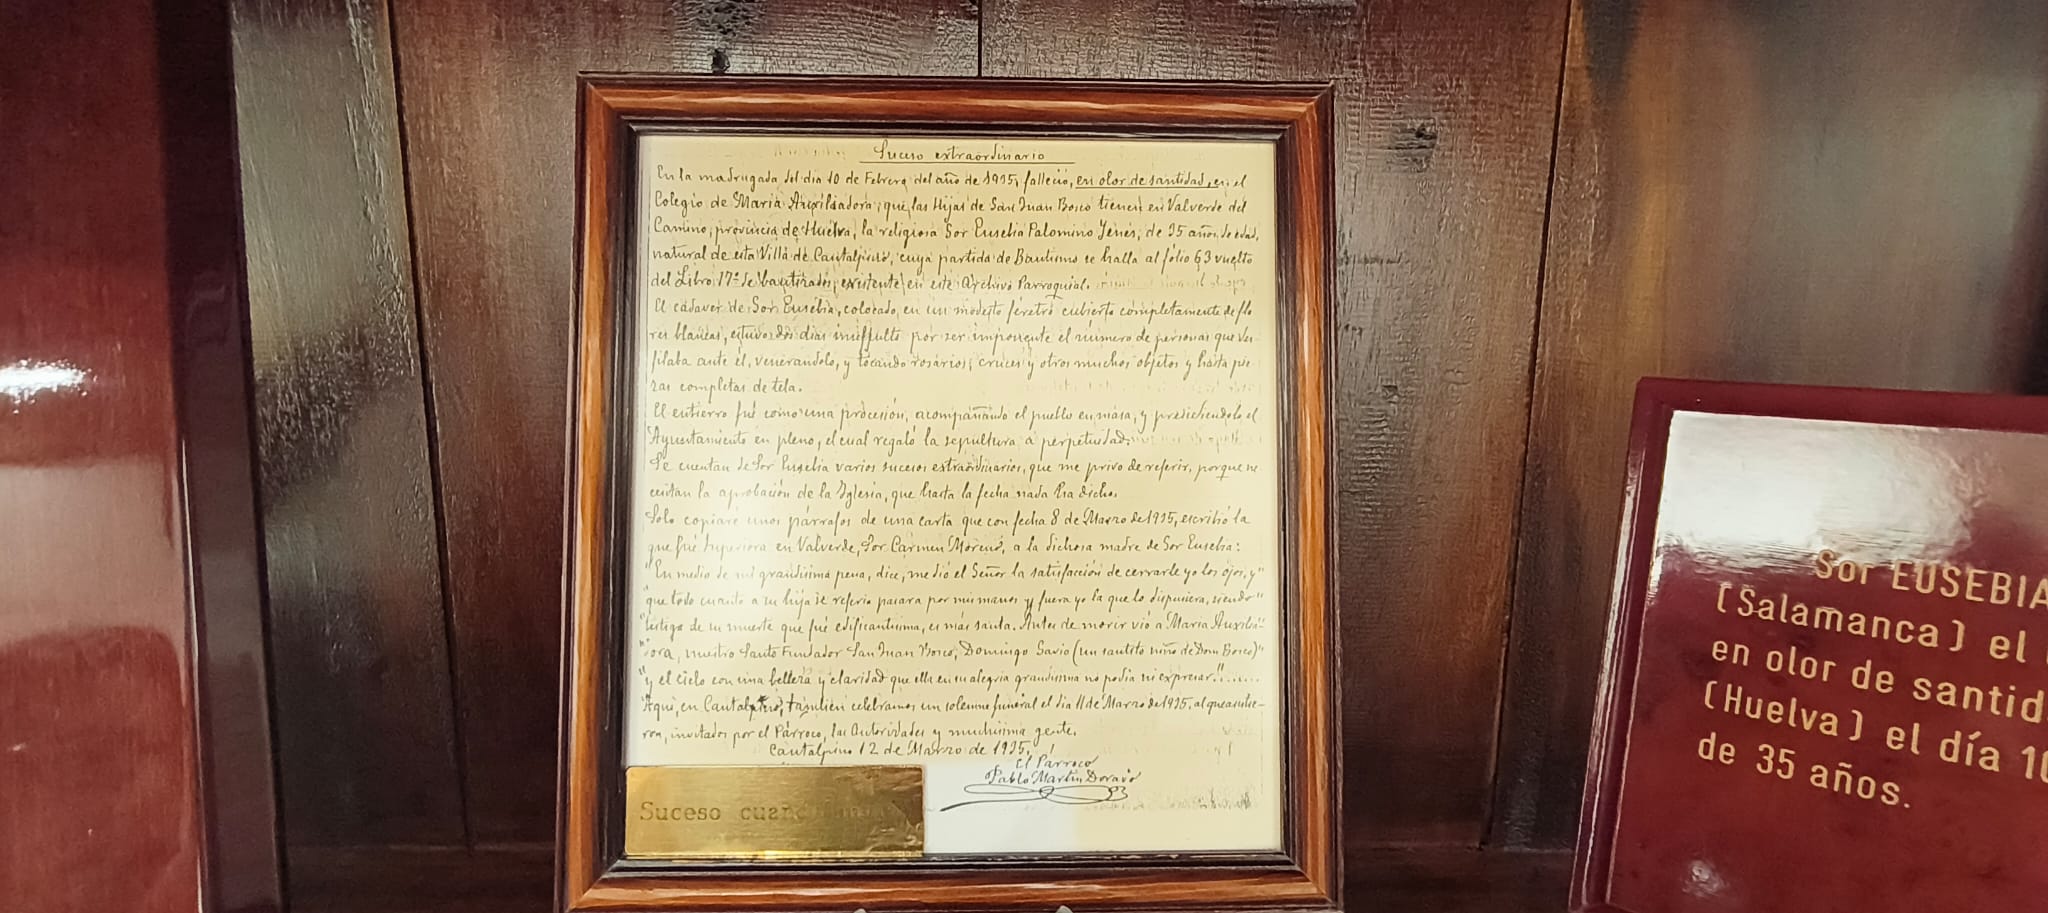 Suceso extraordinario
En la madrugada del día 10 de Febrero del año de 1935, falleció, en olor de santidad, en el
Colegio de María Auxiliadora, que las Hijas de San Juan Bosco tienen en Valverde del
Camino, provincia de Huelva, la religiosa Sor Eusebia Palomino Yenes, de 35 años de edad,
natural de esta Villa de Cantalpino, cuya partida de Bautismo se halla al fólio 63 vuelto
del Libro 17º de bautizados, existente en este Archivo Parroquial.
El cadáver de Sor Eusebia, colocado en un modesto féretro cubierto completamente de flo
res blancas, estuvo dos días insepulto por ser imponente el número de personas que des
filaba ante él, venerándolo, y tocando rosarios, cruces y otros muchos objetos y hasta pie-
zas completas de tela.
El entierro fué como una procesión, acompañando el pueblo en masa, y presidiéndolo el
Ayuntamiento en pleno, el cual regaló la sepultura a perpetuidad.
Se cuentan de Sor Eusebia varios sucesos extraordinarios, que me privo de referir, porque ne-
cesitan la aprobación de la Iglesia, que hasta la fecha nada ha dicho.
Solo copiaré unos párrafos de una carta que con fecha 8 de Marzo de 1935, escribió la
que fué Superiora en Valverde, Sor Carmen Moreno, a la dichosa madre de Sor Eusebia:
"En medio de mi grandísima pena, dice, me dió el Señor la satisfacción de cerrarle yo los ojos, y"
"que todo cuanto a su hija se refería pasara por mis manos y fuera yo la que lo dispusiera, siendo"
"testigo de su muerte que fué edificantísima, es más santa. Antes de morir vió a María Auxilia-"
"dora, nuestro Santo Fundador San Juan Bosco, Domingo Savio (un santito niño de Dom Bosco)"
"y el cielo con una belleza y claridad que ella en su alegría grandísima no podía ni expresar."......
Aquí, en Cantalpino, también celebramos un solemne funeral el día 11 de Marzo de 1935, al que asistie-
ron, invitados por el Párroco, las Autoridades y muchísima gente.
Cantalpino 12 de Marzo de 1935.
El Párroco
Pablo Martín Dorado
Suceso
Sor EUSEBIA
(Salamanca) el
en olor de
(Huelva) el día 10
de 35 años.